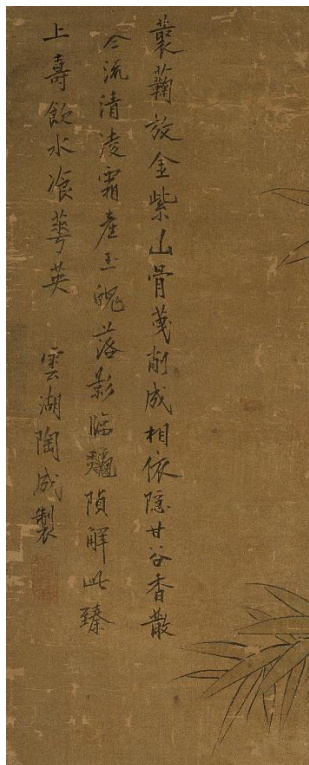 藂蘜放金紫山骨削成相依隱甘谷香散
流清凌霜產玉魄落影臨隕解此臻
上壽飲水飡英 雲湖陶成製